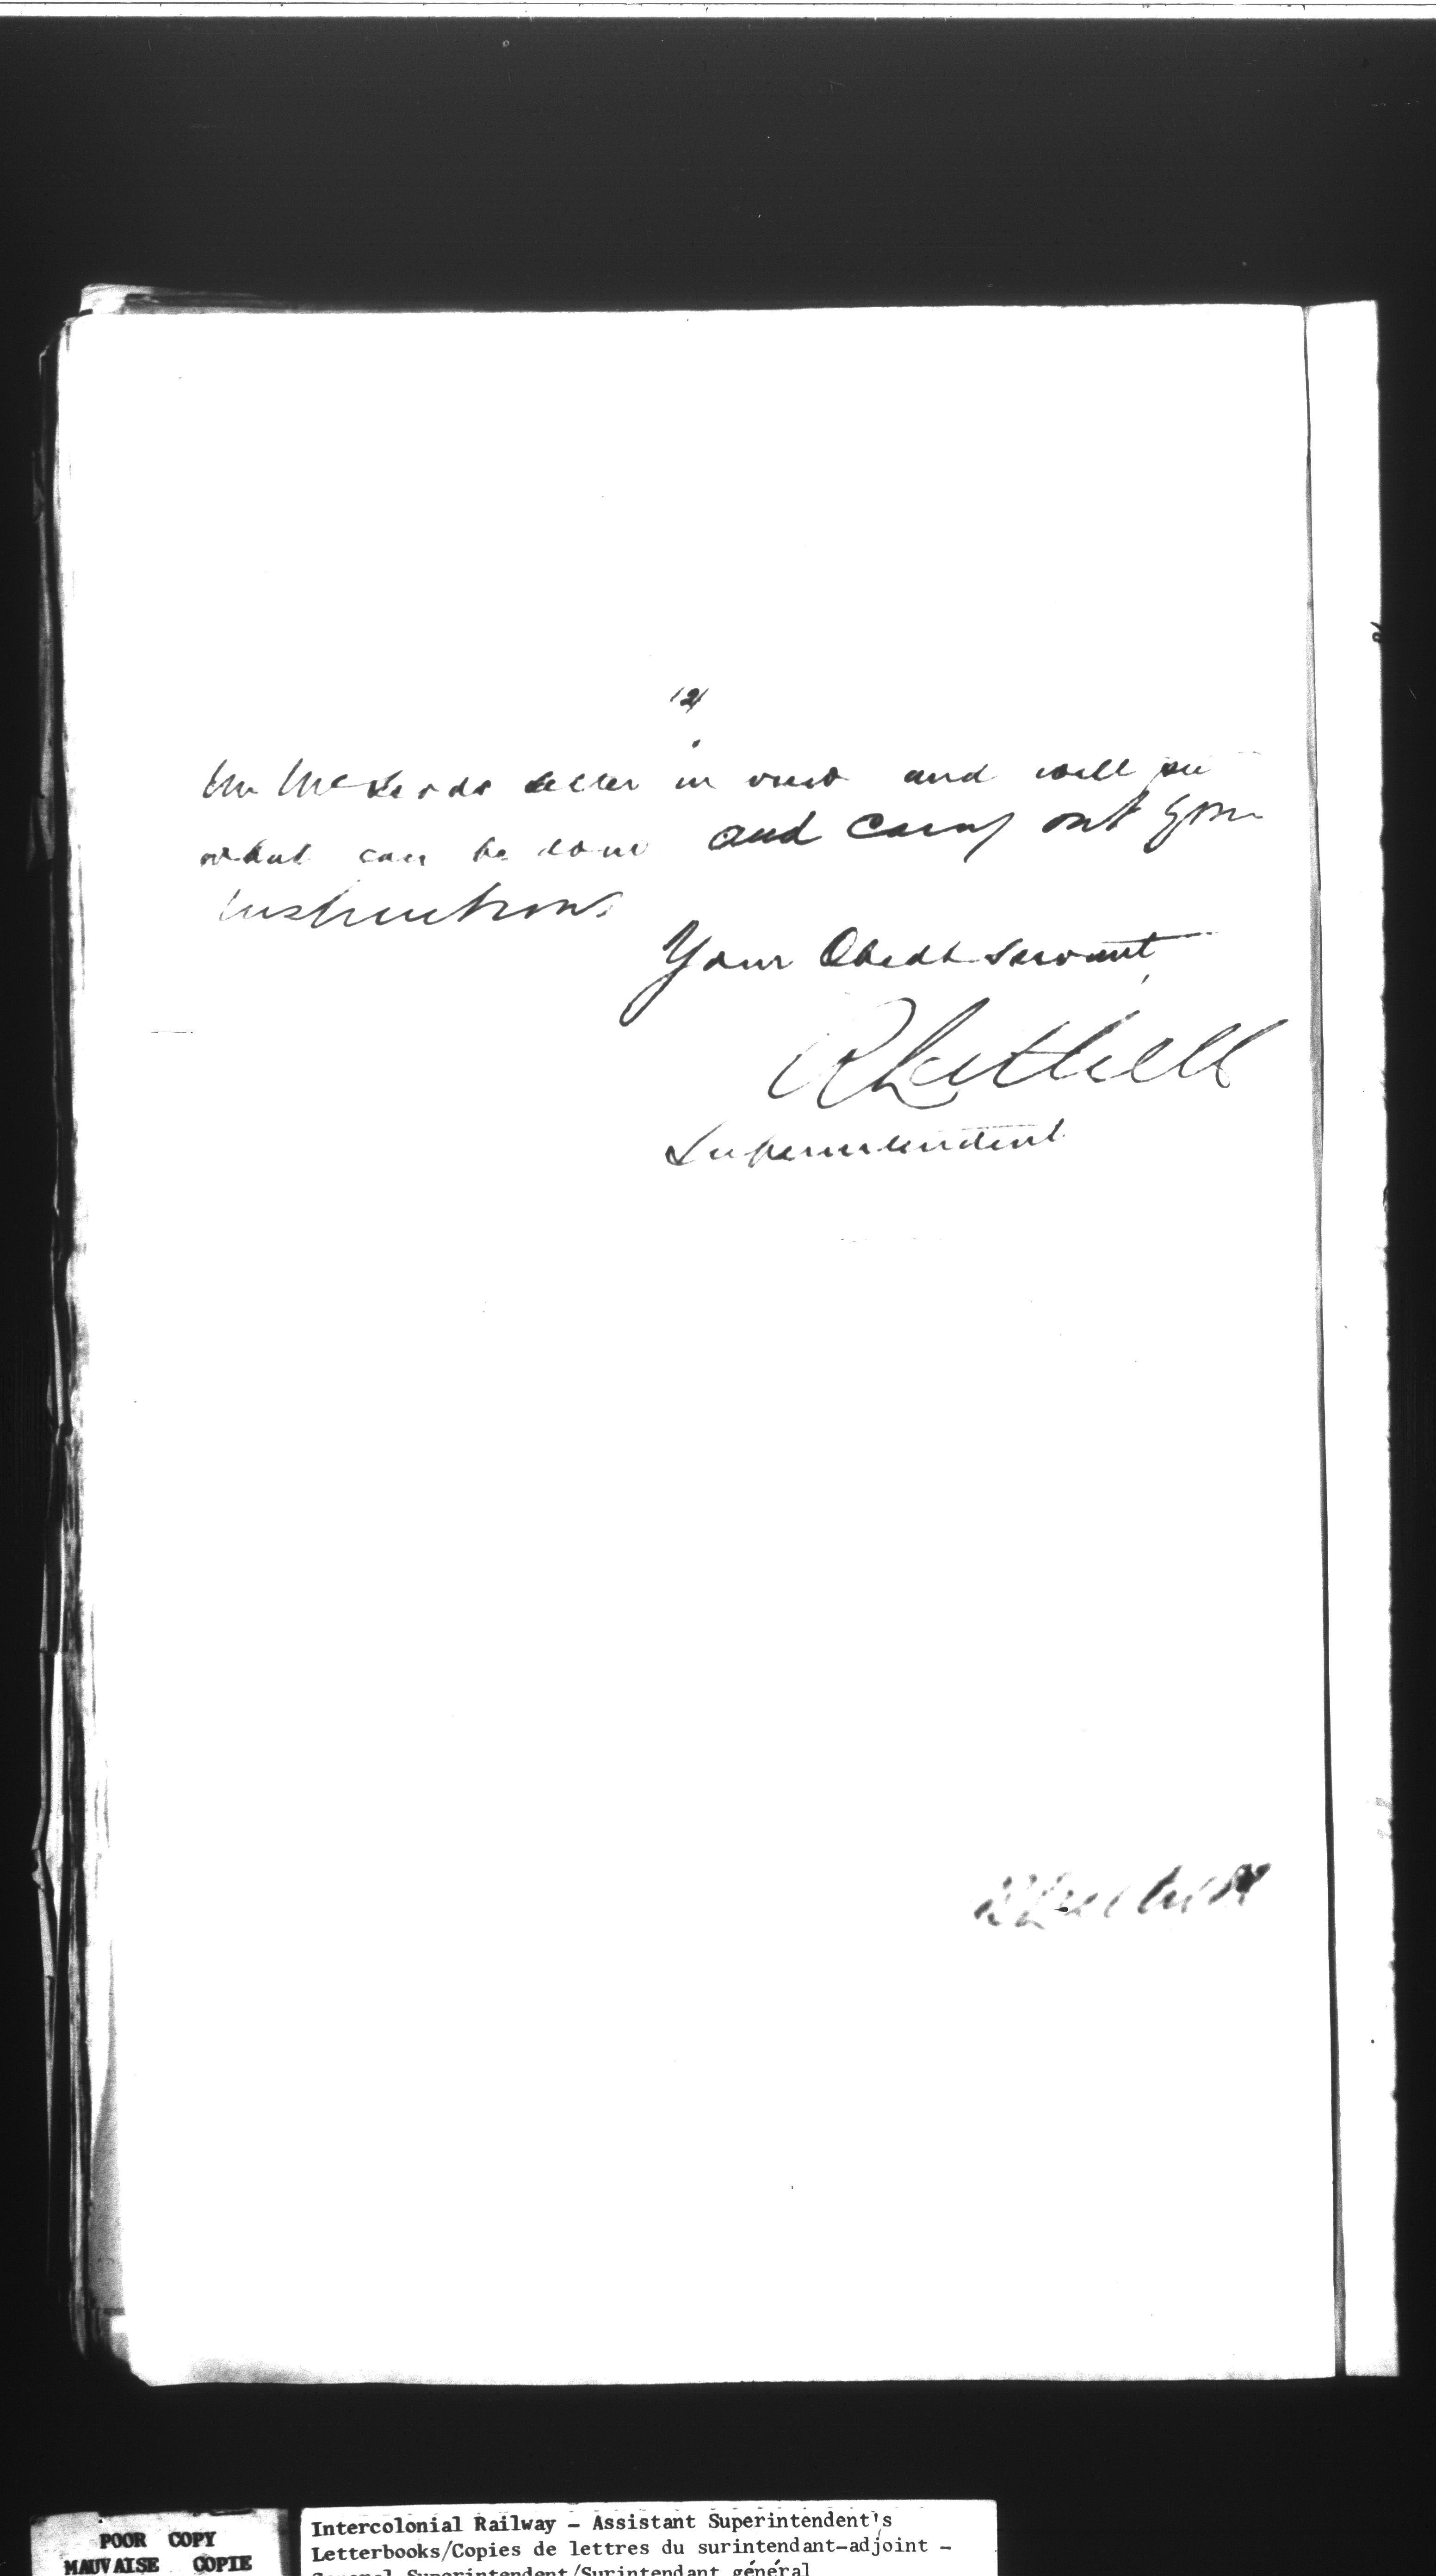 (2)
Mr McLeods letter in view and will see
what can be done and carry out your
instructions
Your Obedt servant
R Luttrell
Superintendent
R Luttrell
POOR COPY
MAUVAISE COPIE
Intercolonial Railway - Assistant Superintendent's
Letterbooks/Copies de lettres du surintendant-adjoint -
General Superintendent/Surintendant général